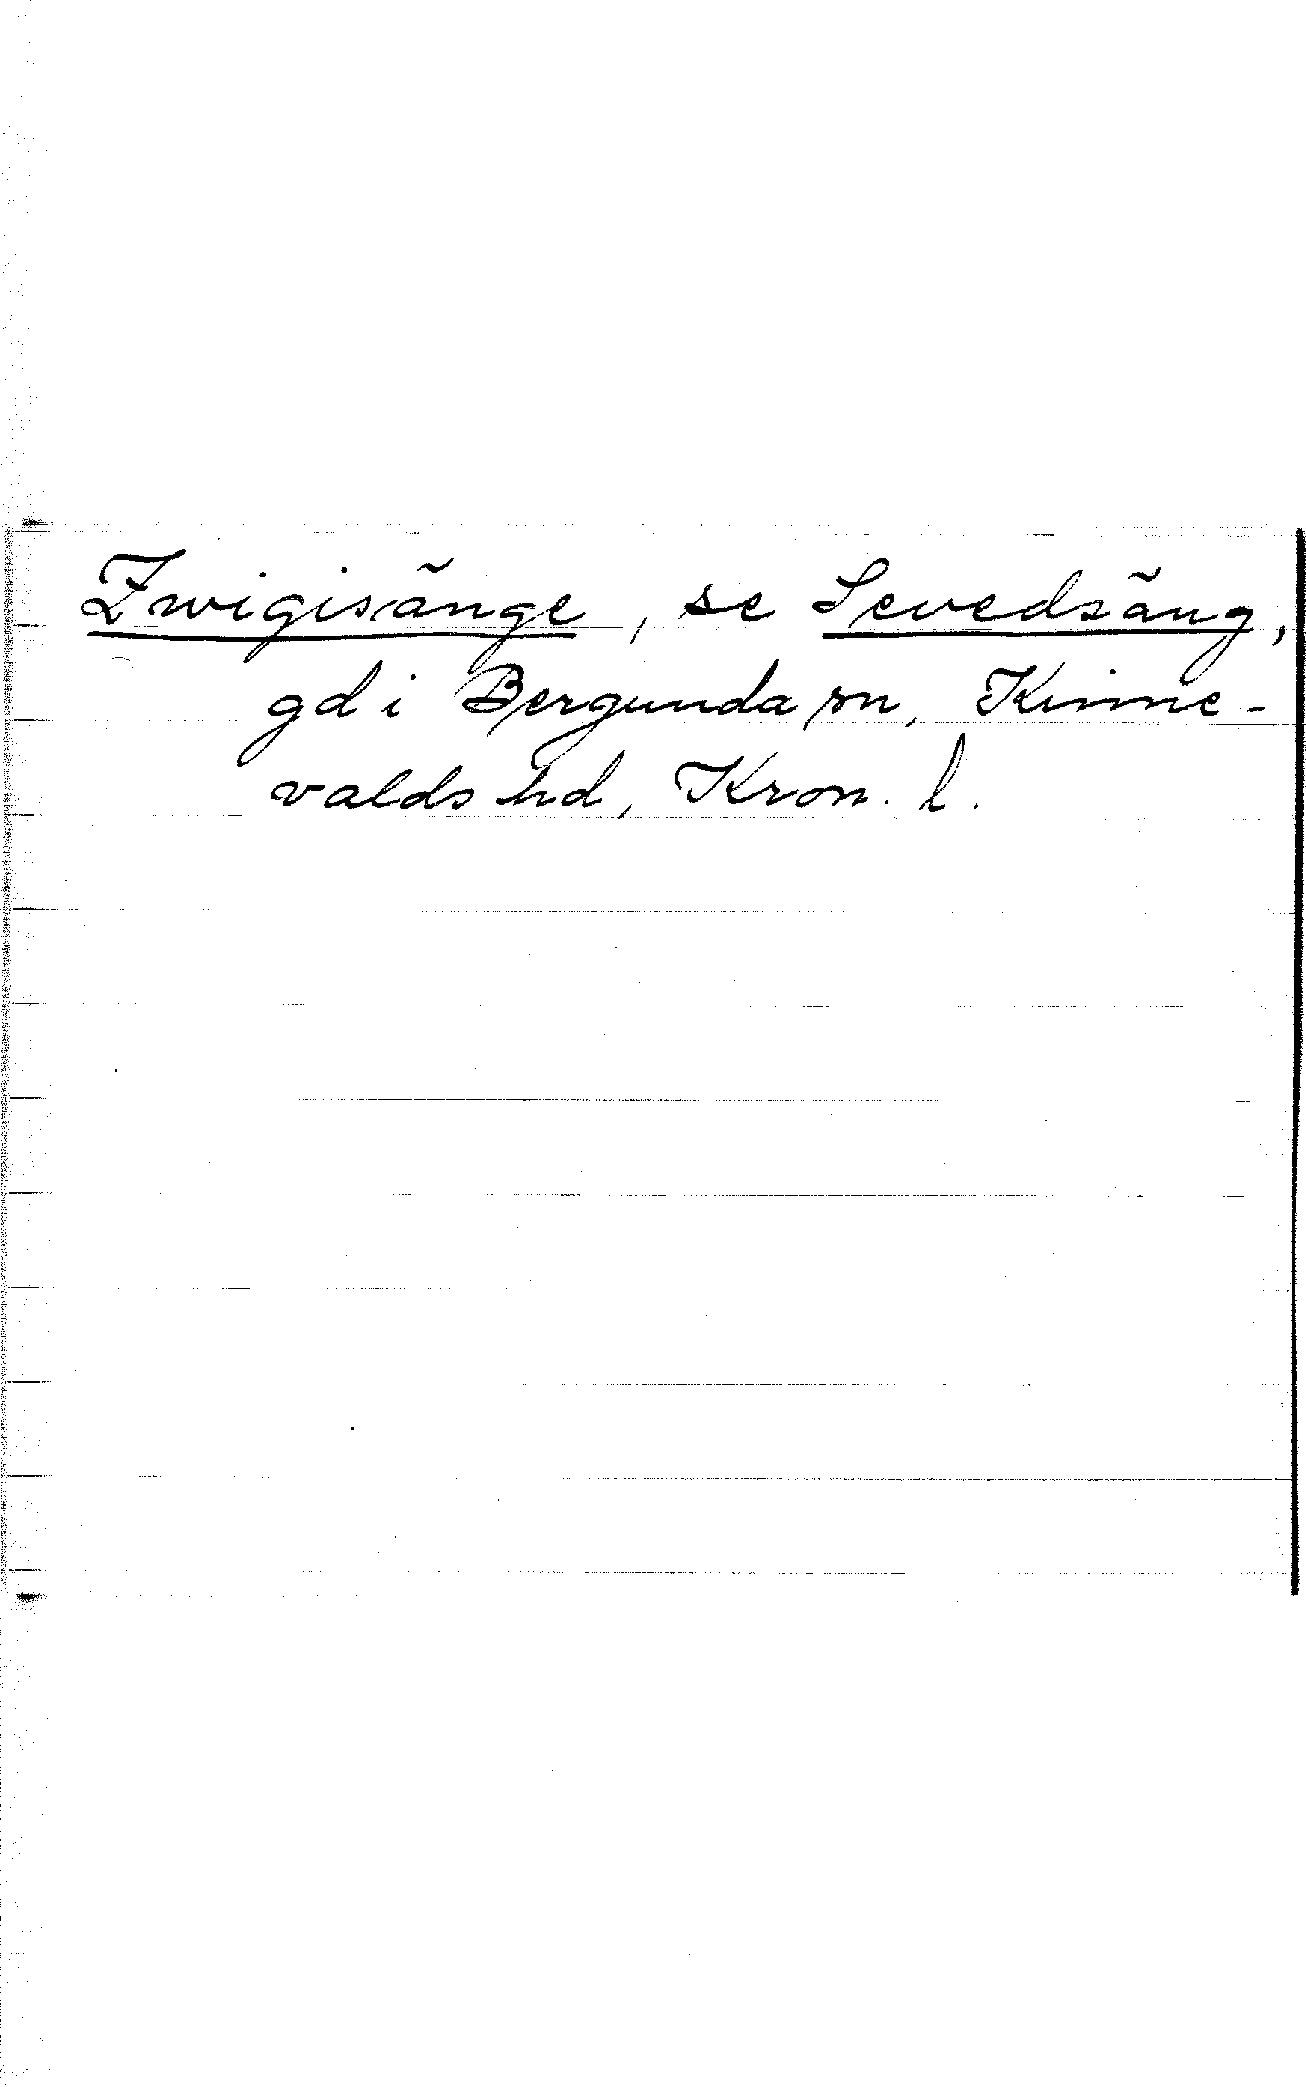 Zwigisänge, se Sevedsäng,
gd i Bergunda sn, Kinne-
valds hd, Kron. l.